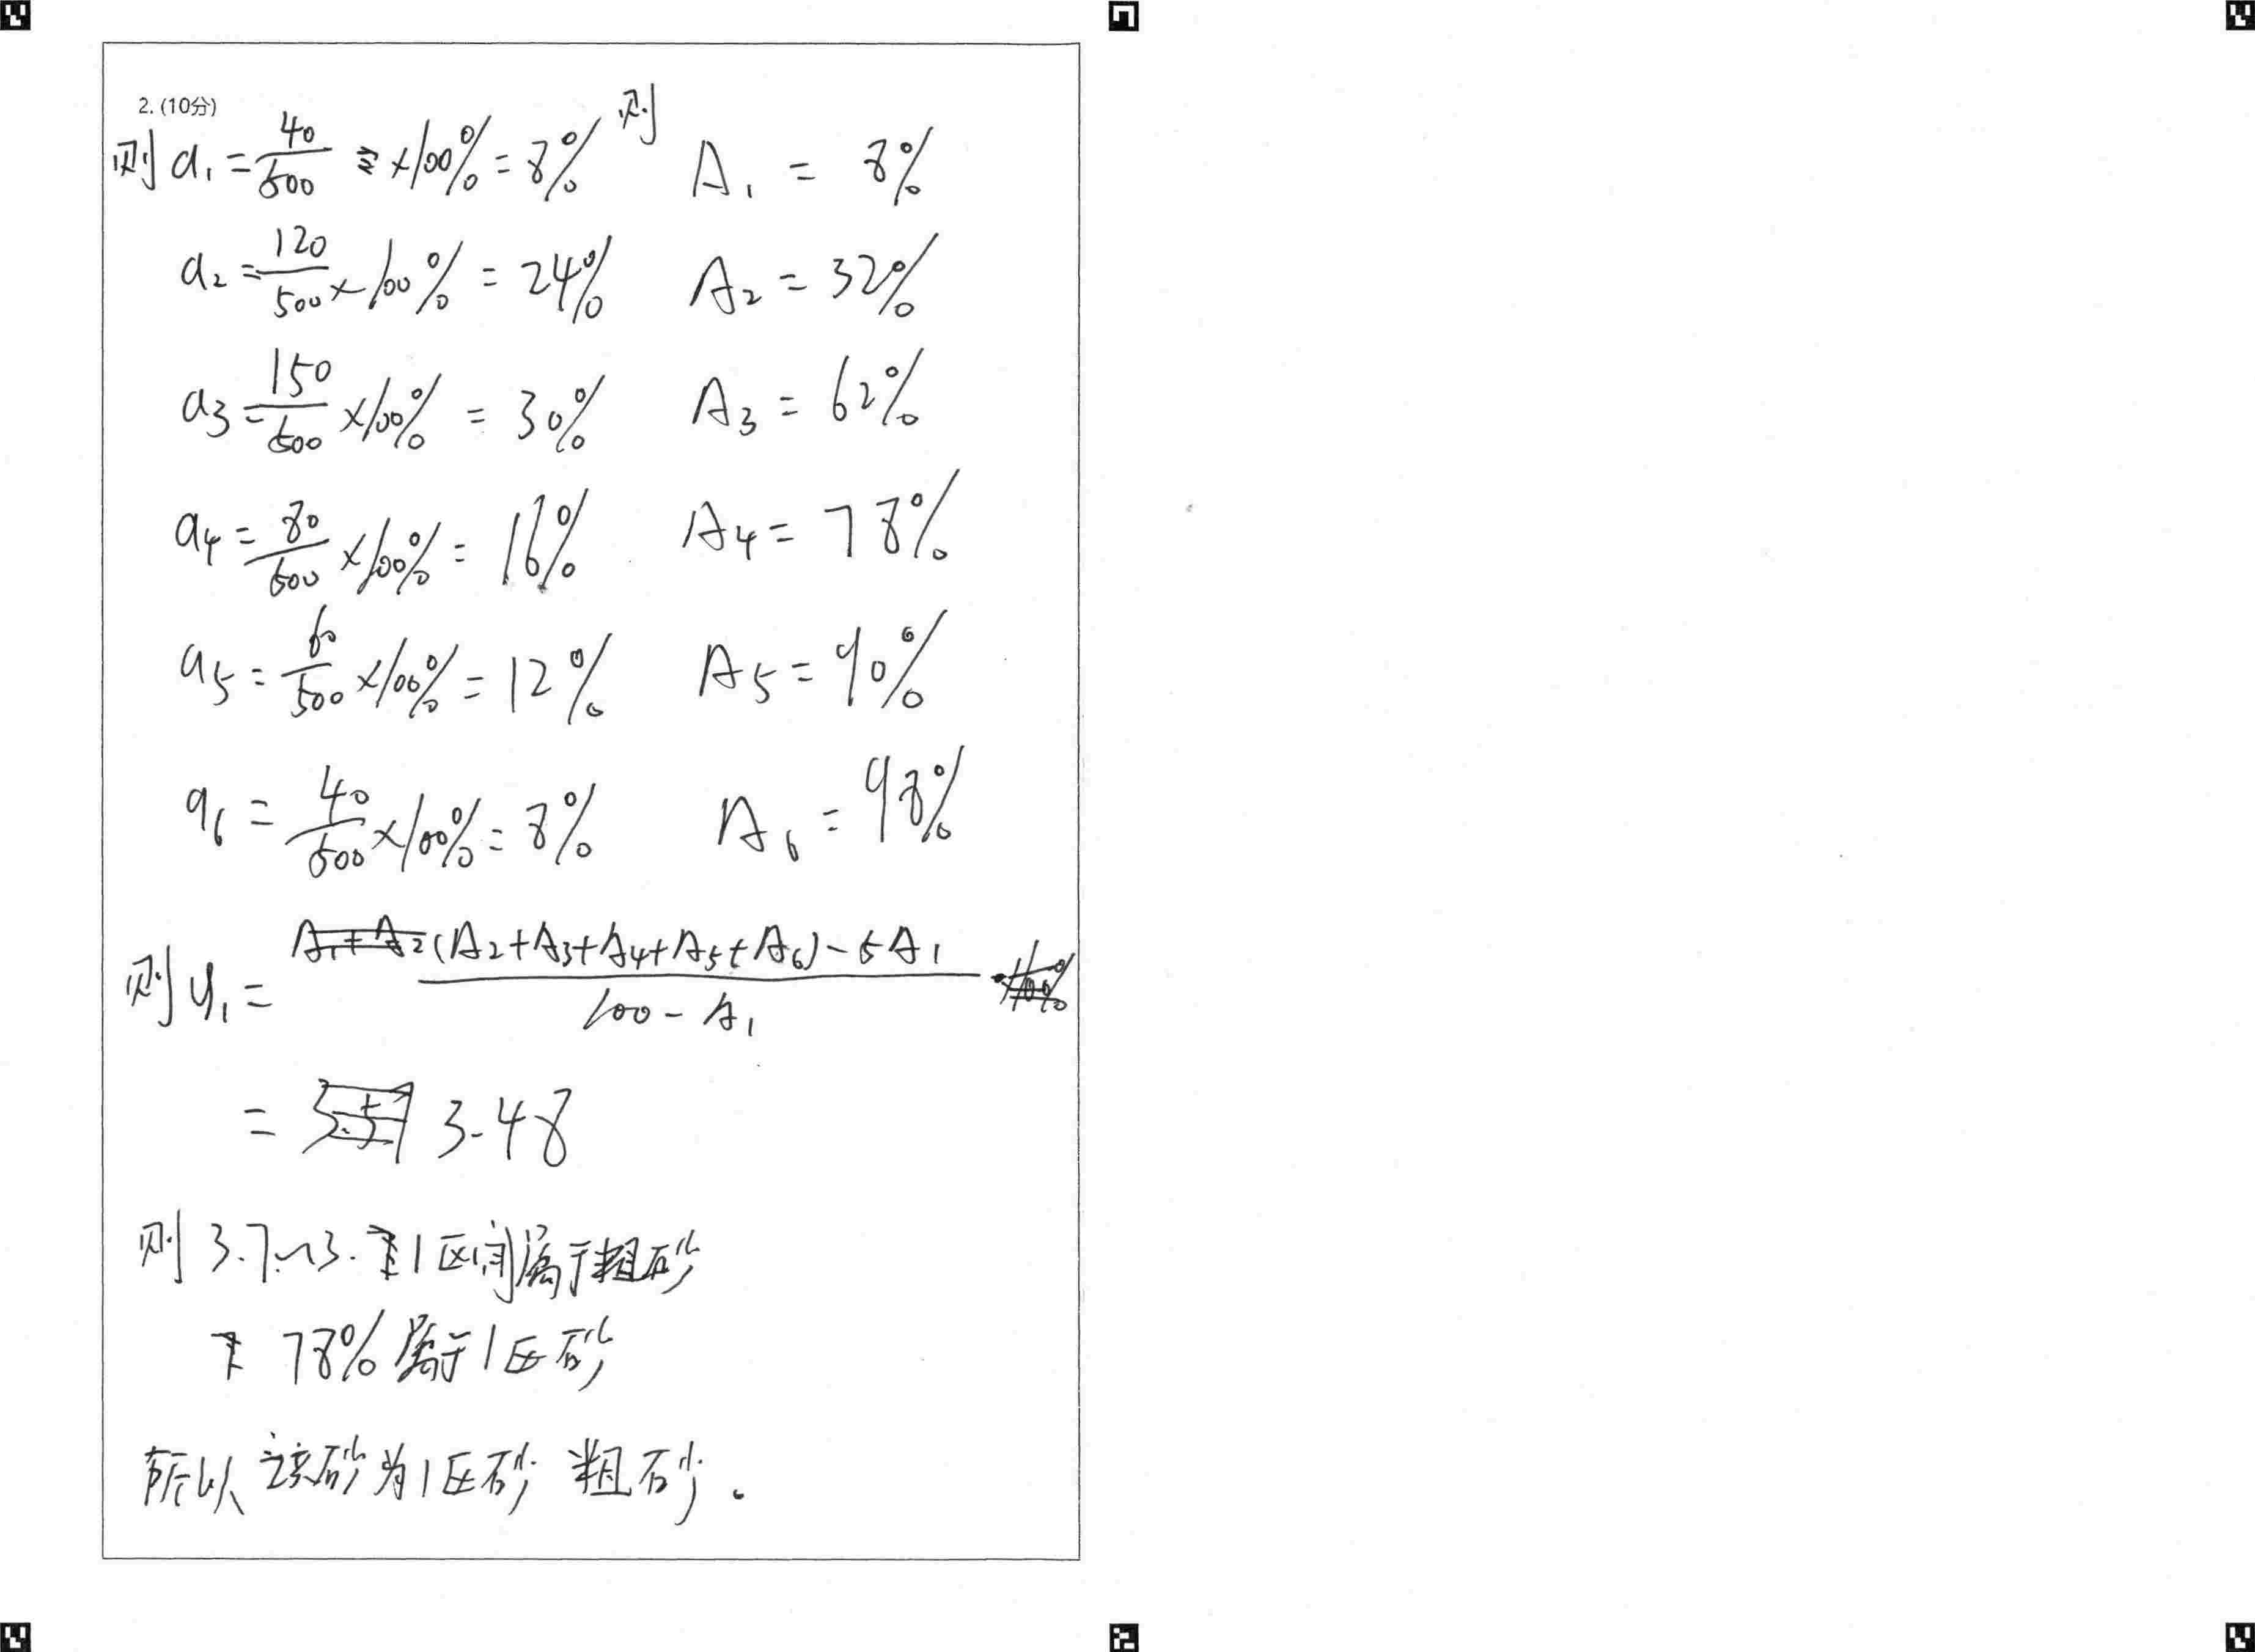 2. (10分)
则 a₁ = 40/500 × 100% = 8% 则 A₁ = 8%
a₂ = 120/500 × 100% = 24% A₂ = 32%
a₃ = 150/500 × 100% = 30% A₃ = 62%
a₄ = 80/500 × 100% = 16% A₄ = 78%
a₅ = 60/500 × 100% = 12% A₅ = 90%
a₆ = 40/500 × 100% = 8% A₆ = 98%
则 μ₁ = (A₂+A₃+A₄+A₅+A₆)-5A₁ / 100-A₁
= 3.48
则 3.7~3.1区间属于粗砂
78%属于1区砂
所以该砂为1区砂 粗砂。